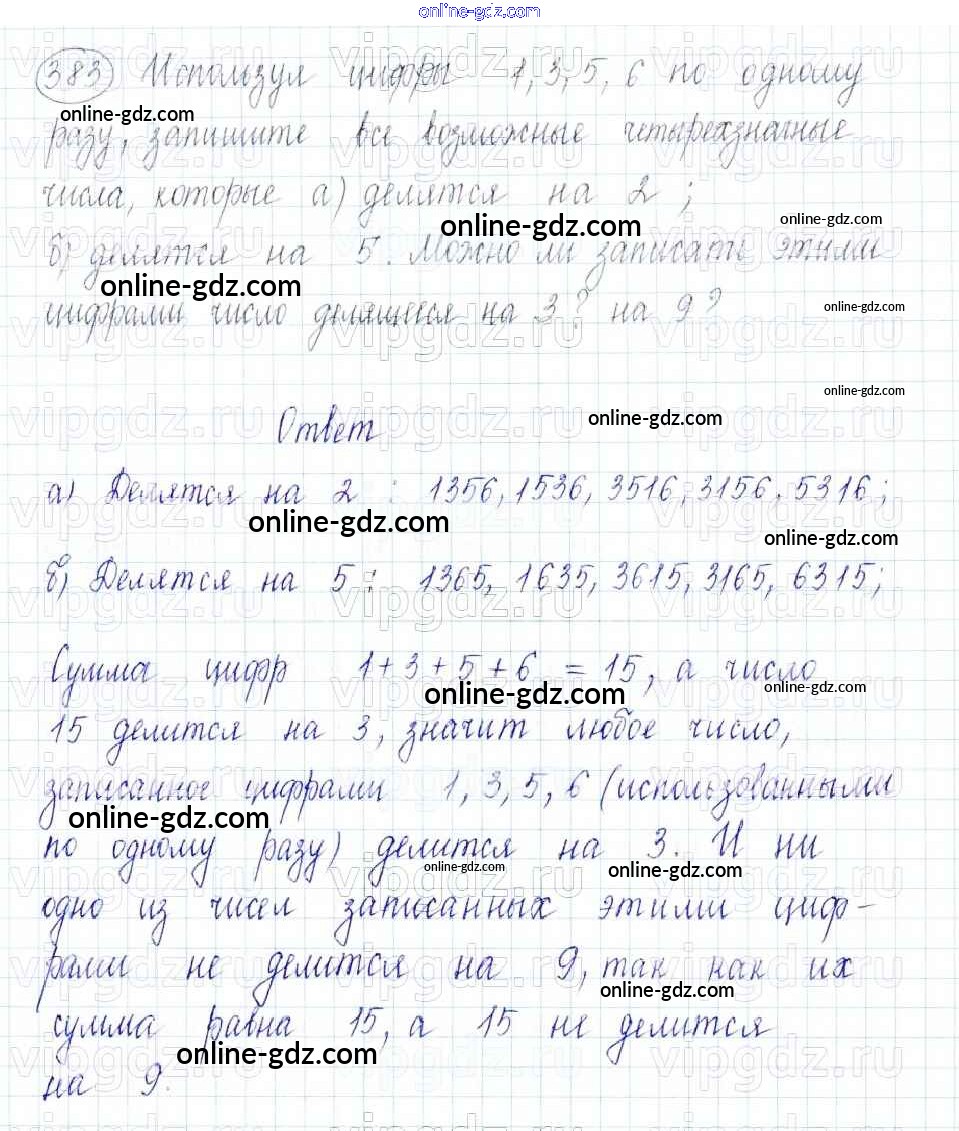 online-gdz.com
383 Используя цифры 1, 3, 5, 6 по одному
online-gdz.com
разу, запишите все возможные четырехзначные
числа, которые а) делятся на 2;
online-gdz.com
online-gdz.com
б) делятся на 5. Можно ли записать этими
online-gdz.com
цифрами число делящееся на 3? на 9?
online-gdz.com
online-gdz.com
Ответ
online-gdz.com
а) Делятся на 2 : 1356, 1536, 3516, 3156, 5316;
online-gdz.com
online-gdz.com
б) Делятся на 5 : 1365, 1635, 3615, 3165, 6315;
Сумма цифр 1+3+5+6 = 15, а число
online-gdz.com
online-gdz.com
15 делится на 3, значит любое число,
записанное цифрами 1, 3, 5, 6 (использованными
online-gdz.com
по одному разу) делится на 3. И ни
online-gdz.com
online-gdz.com
одно из чисел записанных этими циф-
рами не делится на 9, так как их
online-gdz.com
сумма равна 15, а 15 не делится
online-gdz.com
на 9.